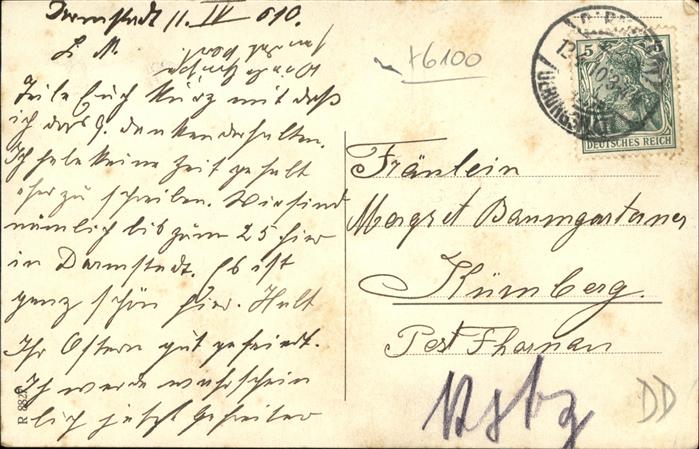 Darmstadt 11. IV 010.
L. M.
Teile Euch kurz mit daß
ich das P. dankend erhalten.
Ich habe keine Zeit gehabt
eher zu schreiben. Wir sind
nämlich bis zum 25 hier
in Darmstadt. Es ist
ganz schön hier. Habt
Ihr Ostern gut gefeiert.
Ich werde wahrschein
lich jetzt
R 8820
+6100
5
DEUTSCHES REICH
Fräulein
Margret Baumgartner
Kürnberg.
Post
DD